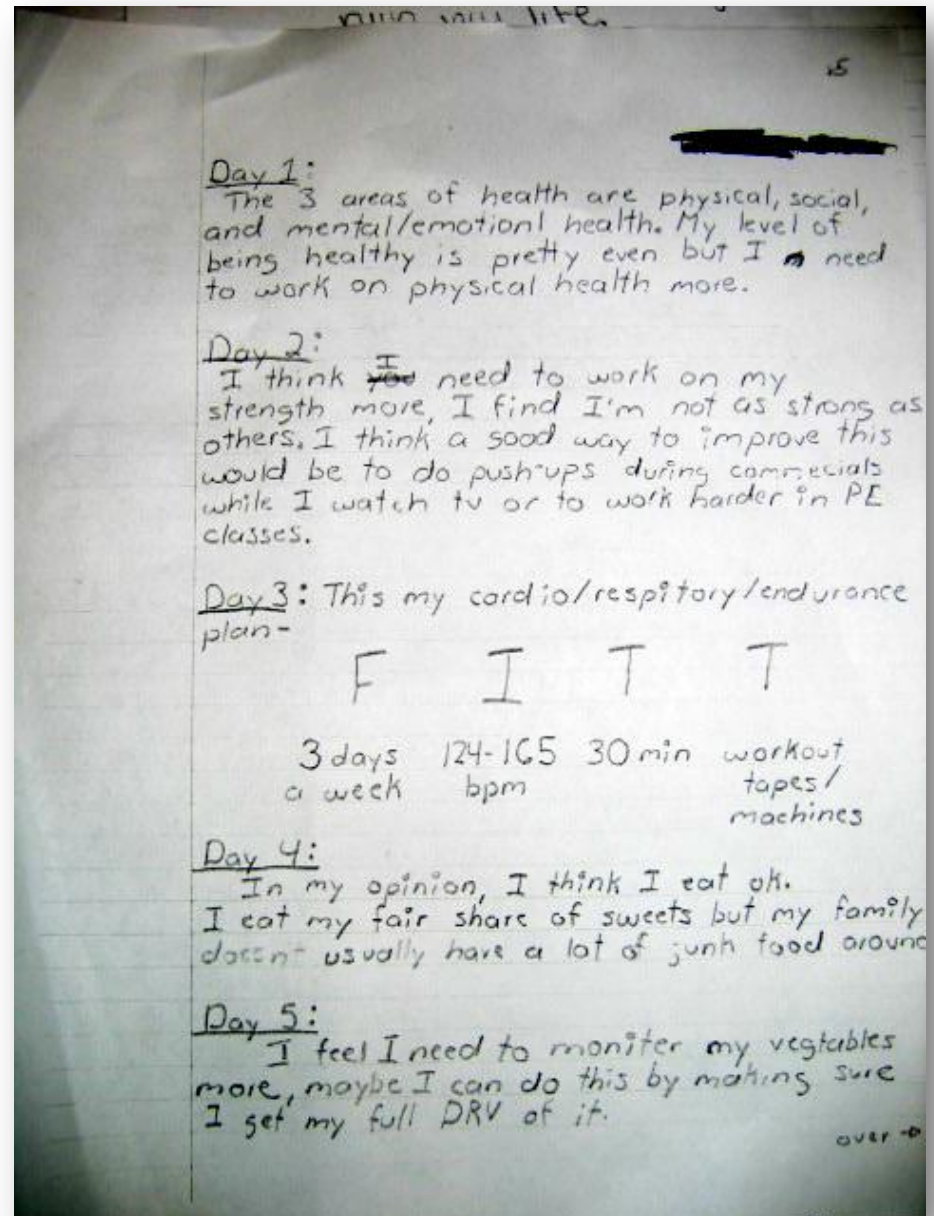 life.
5
Day 1:
The 3 areas of health are physical, social,
and mental/emotionl health. My level of
being healthy is pretty even but I need
to work on physical health more.
Day 2:
I think I need to work on my
strength more, I find I'm not as strong as
others. I think a good way to improve this
would be to do push-ups during commecials
while I watch tv or to work harder in PE
classes.
Day 3: This my cardio/respitory/endurance
plan-
F I T T
3 days 124-165 30 min workout
a week bpm tapes/
machines
Day 4:
In my opinion, I think I eat ok.
I eat my fair share of sweets but my family
doesn't usually have a lot of junk food around
Day 5:
I feel I need to moniter my vegtables
more, maybe I can do this by making sure
I get my full DRV of it.
over →